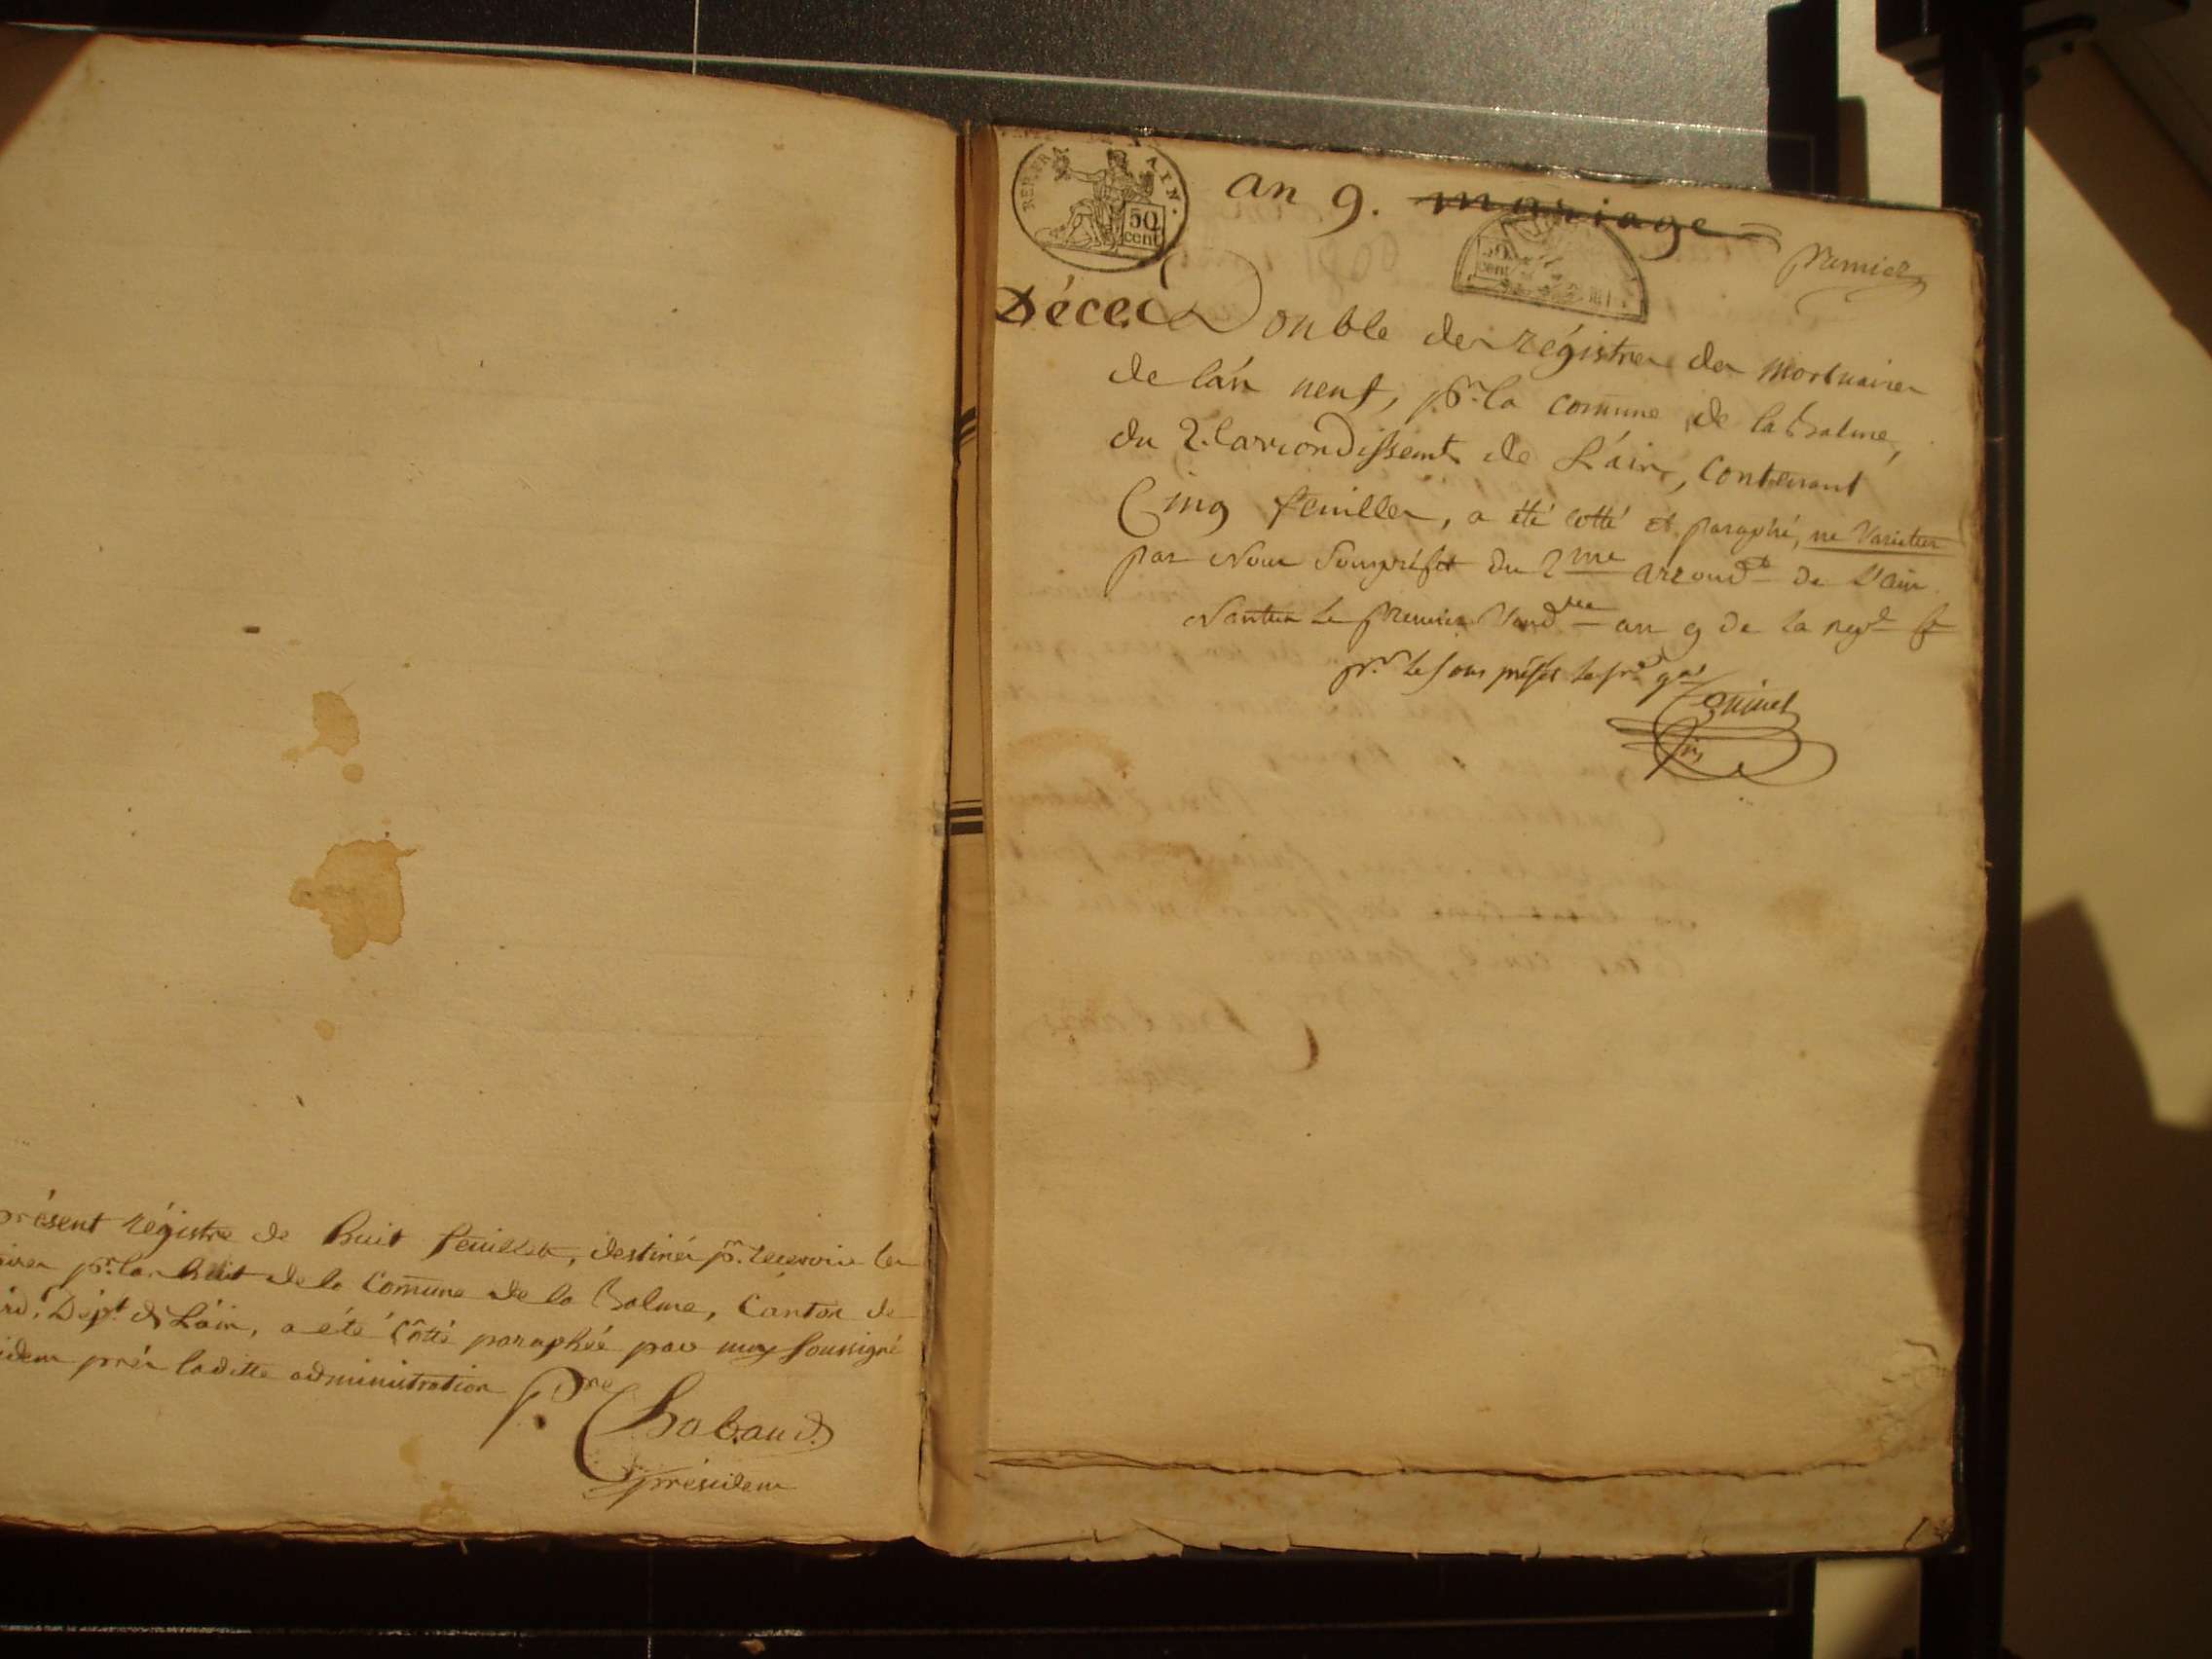 présent régistre de huit feuillets, destinés pr. recevoir les
pr. lan huit de la Comune de la Balme, Canton de
Dépt. de Láin, a été Côtté paraphée par moy soussigné
près laditte administration
P.re Chabaud
président
REP. FRA.
AIN.
50
cent
an 9. mariage
50
cent
premier
Décès
Double des régistres des mortuaires
de lán neuf, pr. la comune de la Balme,
du 2. larrondissemt. de Láin, contenant
Cinq feuilles, a été cotté et paraphé, ne Varietur
par Nous Sousprefet du 2me arrondt de L'ain.
Nantua le premier Vendre an 9 de la repe fr
pr. le sous préfet le sre gal